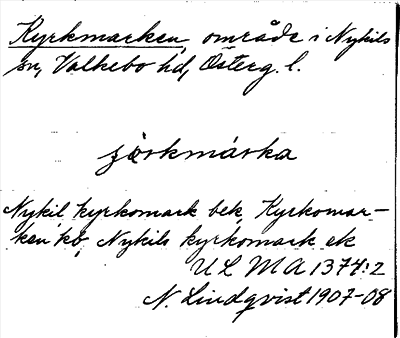 Kyrkmarken, område i Nykils
sn, Valkebo hd, Österg. l.
Nykil kyrkomark bek, Kyrkomar-
ken kb, Nykils kyrkomark ek
ULMA 1374:2
N. Lindqvist 1907-08